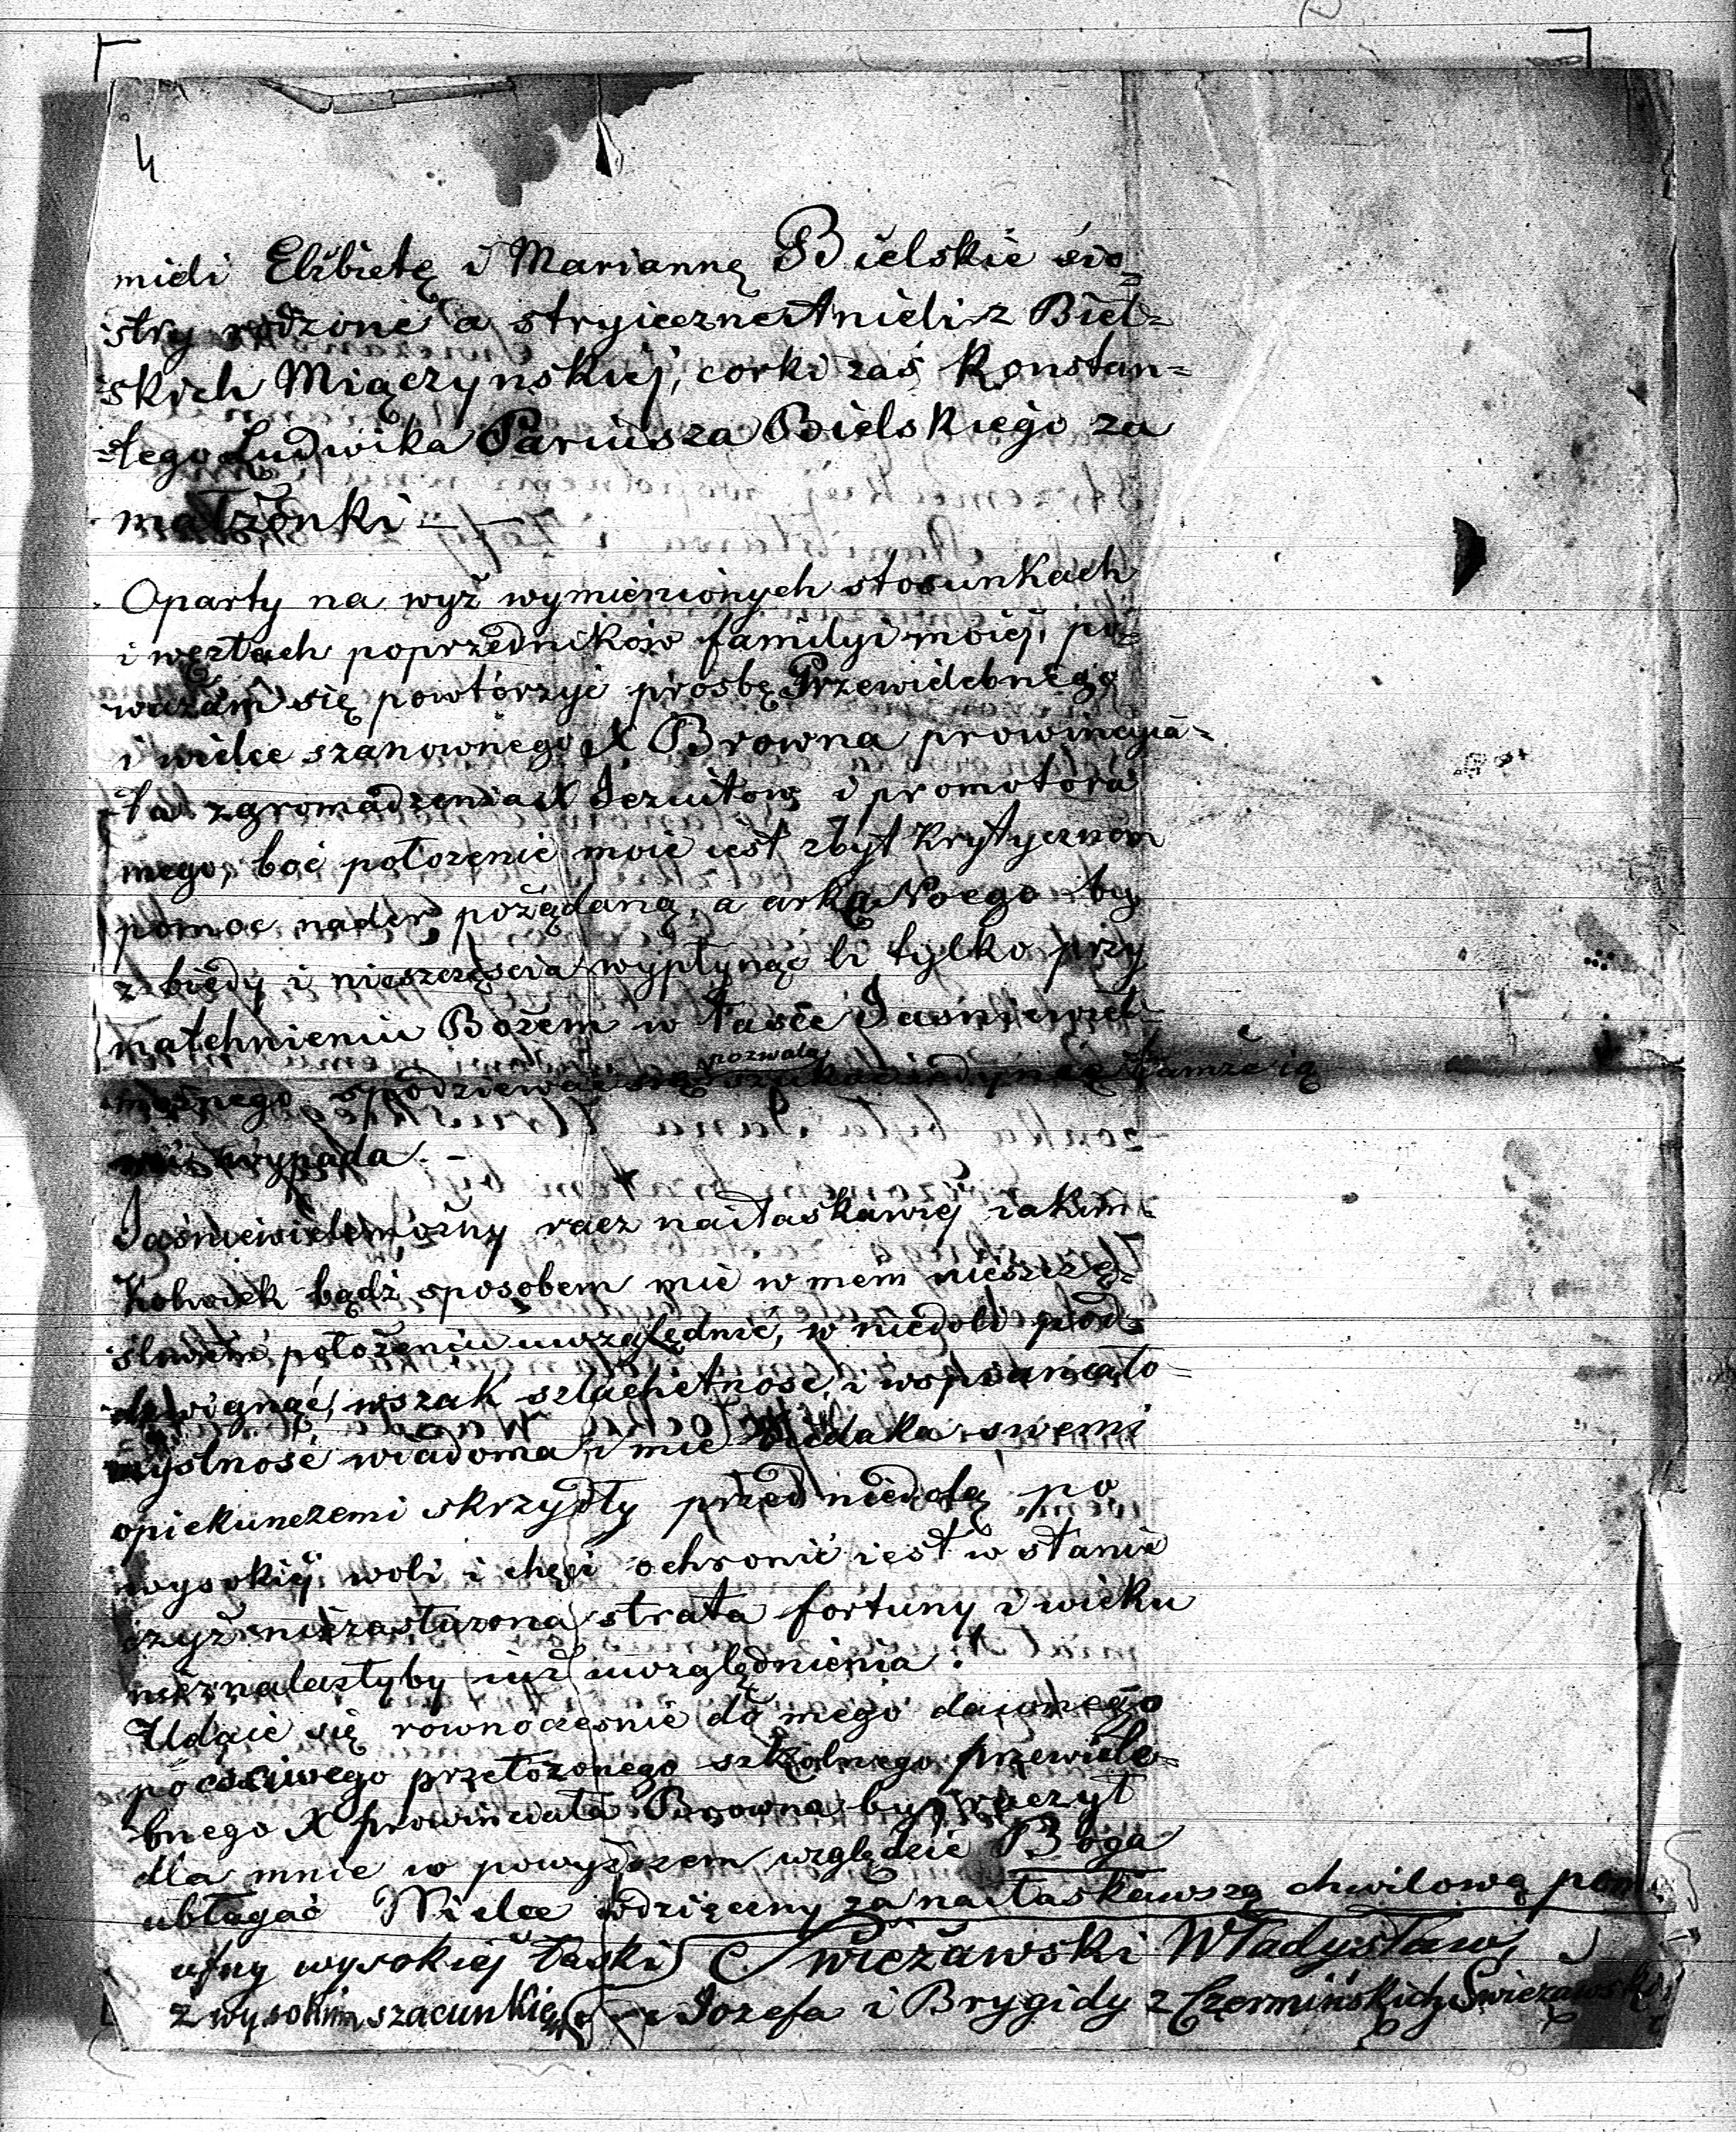 4
mieli Elżbietę i Mariannę Bielskie sio=
stry rodzone a stryieczne Anieli z Biel=
skich Miączyńskiej, corki zaś Konstan=
=tego Ludwika Pariusza Bielskiego za
małżonki — —
Oparty na wyż wymienionych stosunkach
i węzłach poprzedników familyi moiej, po=
ważam się powtórzyć prosbę Przewielebnego
i wielce szanownego X Browna prowincyia=
=ła zgromadzenia X Jezuitow i promotora
mego, boć położenie moie iest zbyt krytycznem
pomoc nader pożądaną, a arką Noego by
z biedy i nieszczęscia wypłynąć li tylko przy
natchnieniu Bożem w łasce Jaśniewiel=
możnego spodziewać się pozwala tamże ią
wypada. –
Jaśniewielemożny racz naiłaskawiej iakim=
kolwiek bądź sposobem mie w mem nieszczę=
śliwem położeniu uwzględnić, w niedoli pod=
dzwignąć, wszak szlachetność i wspaniało=
myslność wiadoma i mie biedaka swemi
opiekunczemi skrzydły przed niedolą po
wysokiej woli i chęci ochronić iest w stanie
czyż niezasłużona strata fortuny i wieku
nieznalazłyby iuż uwzględnienia?
Udaie się rownocześnie do mego dawnego
poczciwego przełożonego szkolnego przewiele=
bnego X prowinciała Browna by raczył
dla mnie w powyższem względzie Boga
ubłagać Wielce wdzięczny za naiłaskawszą chwilową pomo
ufny wysokiej łaski Swieżawski Władysław
z wysokim szacunkiem Jozefa i Brygidy z Czermińskich Swieżawski